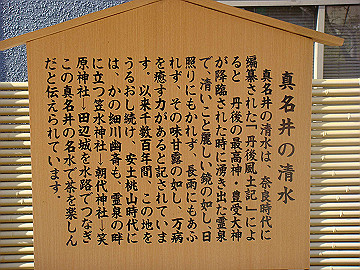 真名井の清水
真名井の清水は、奈良時代に
編纂された「丹後風土記」によ
ると 丹後の最高神・豊受大神
が降臨された時に湧き出た霊泉
で、清いこと麗しい鏡の如し・日
照りにもかれず、長雨にもあふ
れず、その味甘露の如し、万病
を癒す力があると記されていま
す。以来千数百年間、この地を
うるおし続け、安土桃山時代に
は、かの細川幽斎も、霊泉の畔
に立つ笠水神社→朝代神社→笑
原神社→田辺城を水路でつなぎ
この真名井の名水で茶を楽しん
だと伝えられています。